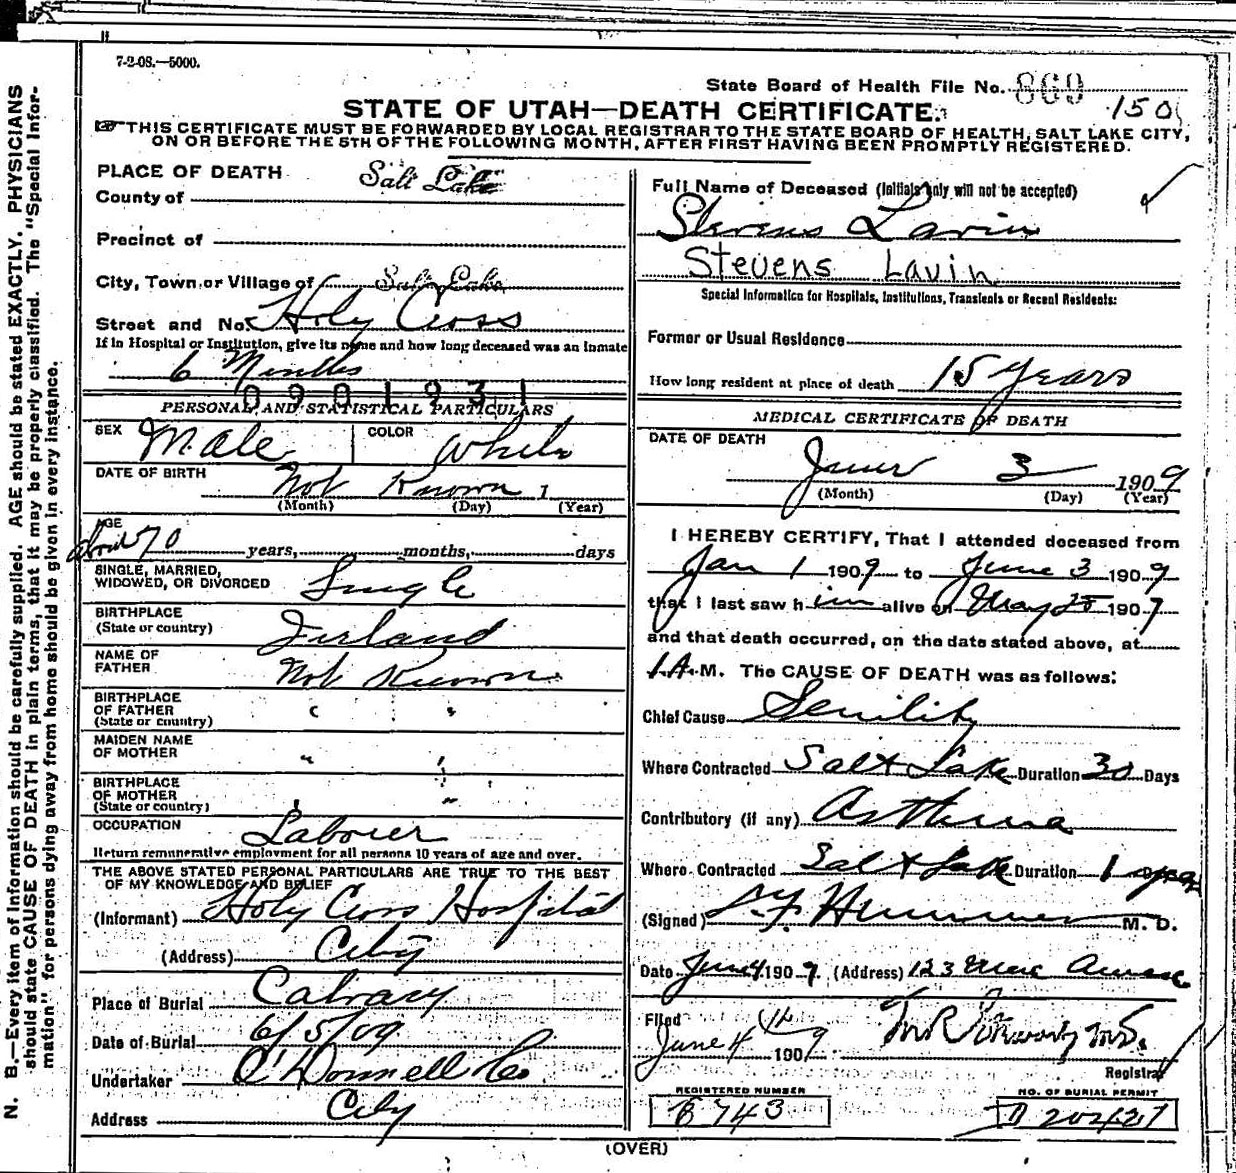 7-2-08.—5000.
State Board of Health File No. 869
150
STATE OF UTAH—DEATH CERTIFICATE.
THIS CERTIFICATE MUST BE FORWARDED BY LOCAL REGISTRAR TO THE STATE BOARD OF HEALTH, SALT LAKE CITY,
ON OR BEFORE THE 5TH OF THE FOLLOWING MONTH, AFTER FIRST HAVING BEEN PROMPTLY REGISTERED.
N. B.—Every item of information should be carefully supplied. AGE should be stated EXACTLY. PHYSICIANS
should state CAUSE OF DEATH in plain terms, that it may be properly classified. The "Special Infor-
mation" for persons dying away from home should be given in every instance.
PLACE OF DEATH
Salt Lake
County of
Precinct of
City, Town or Village of Salt Lake
Street and No. Holy Cross
If in Hospital or Institution, give its name and how long deceased was an inmate
6 Months
0901931
PERSONAL AND STATISTICAL PARTICULARS
SEX Male COLOR White
DATE OF BIRTH Not Known 1
(Month) (Day) (Year)
AGE
about 70 years, months, days
SINGLE, MARRIED,
WIDOWED, OR DIVORCED Single
BIRTHPLACE
(State or country) Irland
NAME OF
FATHER Not Known
BIRTHPLACE
OF FATHER
(State or country) " "
MAIDEN NAME
OF MOTHER " "
BIRTHPLACE
OF MOTHER
(State or country) " "
OCCUPATION Laborer
Return remunerative employment for all persons 10 years of age and over.
THE ABOVE STATED PERSONAL PARTICULARS ARE TRUE TO THE BEST
OF MY KNOWLEDGE AND BELIEF
(Informant) Holy Cross Hospital
(Address) City
Place of Burial Calvary
Date of Burial 6/5/09
Undertaker O'Donnell Co
Address City
Full Name of Deceased (Initials only will not be accepted)
Stevens Lavin
Stevens Lavin
Special Information for Hospitals, Institutions, Transients or Recent Residents:
Former or Usual Residence
How long resident at place of death 15 years
MEDICAL CERTIFICATE OF DEATH
DATE OF DEATH
June 3 1909
(Month) (Day) (Year)
I HEREBY CERTIFY, That I attended deceased from
Jan 1 1909 to June 3 1909
that I last saw him alive on May 28 1909
and that death occurred, on the date stated above, at
1 A. M. The CAUSE OF DEATH was as follows:
Chief Cause Senility
Where Contracted Salt Lake Duration 30 Days
Contributory (if any) Asthma
Where Contracted Salt Lake Duration 1 year
(Signed) M. D.
Date June 4 1909. (Address) 123
Filed
June 4 1909
Registrar
REGISTERED NUMBER
B 743
NO. OF BURIAL PERMIT
D 20427
(OVER)